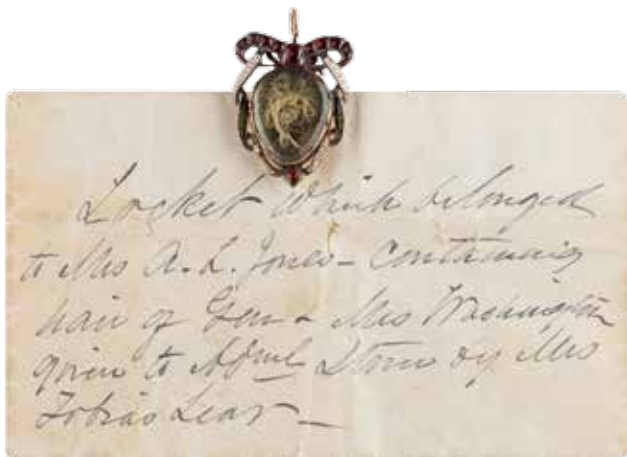 Locket which belonged
to Mrs A. L. Jones - Containing
hair of Gen & Mrs Washington
given to by Mrs
Tobias Lear -